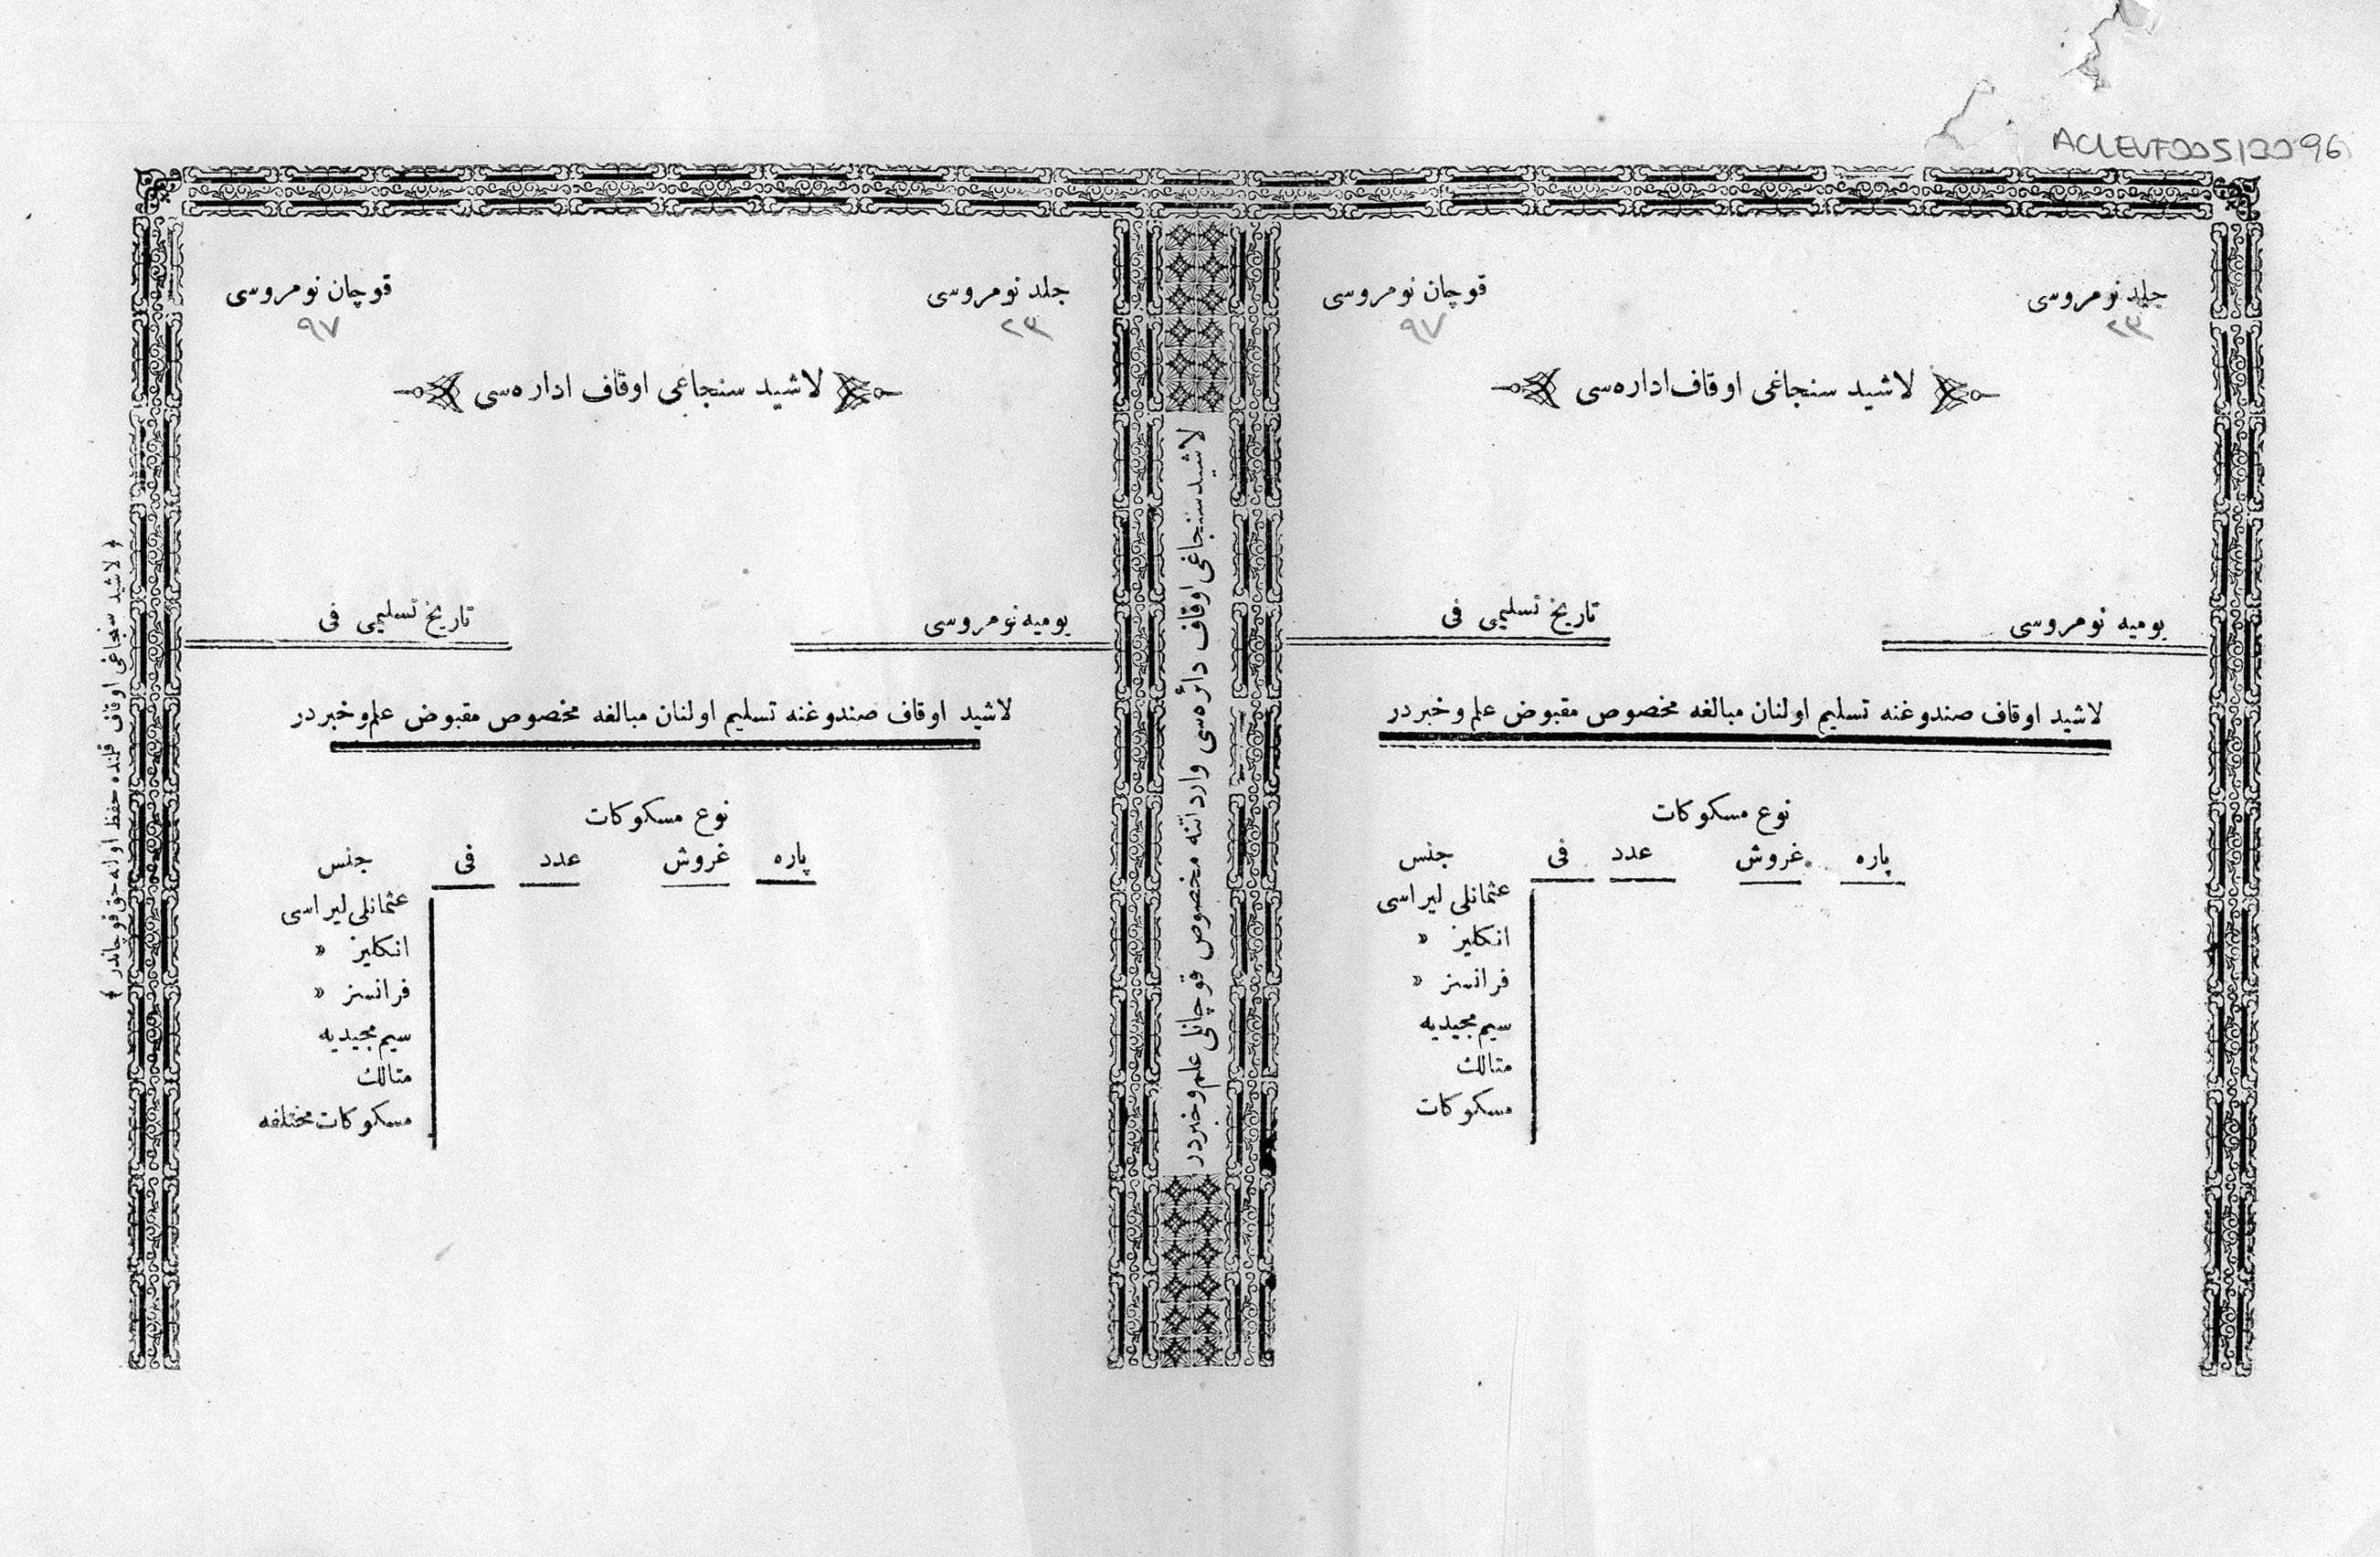 ACLEVF00512096
جلد نومروسی
قوچان نومروسی
٢٣
٩٧
لاشید سنجاغی اوقاف اداره‌سی
یومیه نومروسی
تاریخ تسلیمی فی
لاشید اوقاف صندوغنه تسلیم اولنان مبالغه مخصوص مقبوض علم و خبردر
نوع مسکوکات
پاره غروش عدد فی جنس
عثمانلی لیراسی
انکلیز »
فرانسز »
سیم مجیدیه
متالك
مسکوکات
لاشید سنجاغی اوقاف دائره‌سی وارداتنه مخصوص قوچانلی علم و خبردر
جلد نومروسی
قوچان نومروسی
٢٣
٩٧
لاشید سنجاغی اوقاف اداره‌سی
یومیه نومروسی
تاریخ تسلیمی فی
لاشید اوقاف صندوغنه تسلیم اولنان مبالغه مخصوص مقبوض علم و خبردر
نوع مسکوکات
پاره غروش عدد فی جنس
عثمانلی لیراسی
انکلیز »
فرانسز »
سیم مجیدیه
متالك
مسکوکات مختلفه
﴿ لاشید سنجاغی اوقاف قلنده حفظ اوله‌جق قوچاندر ﴾